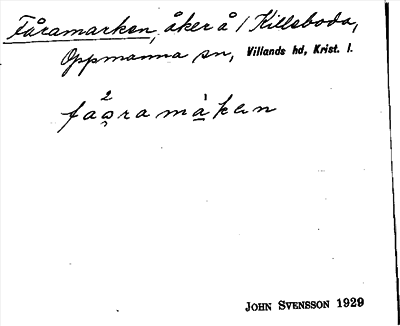 Fåramarken, åker å 1 Killeboda,
Oppmanna sn, Villands hd, Krist. l.
JOHN SVENSSON 1929